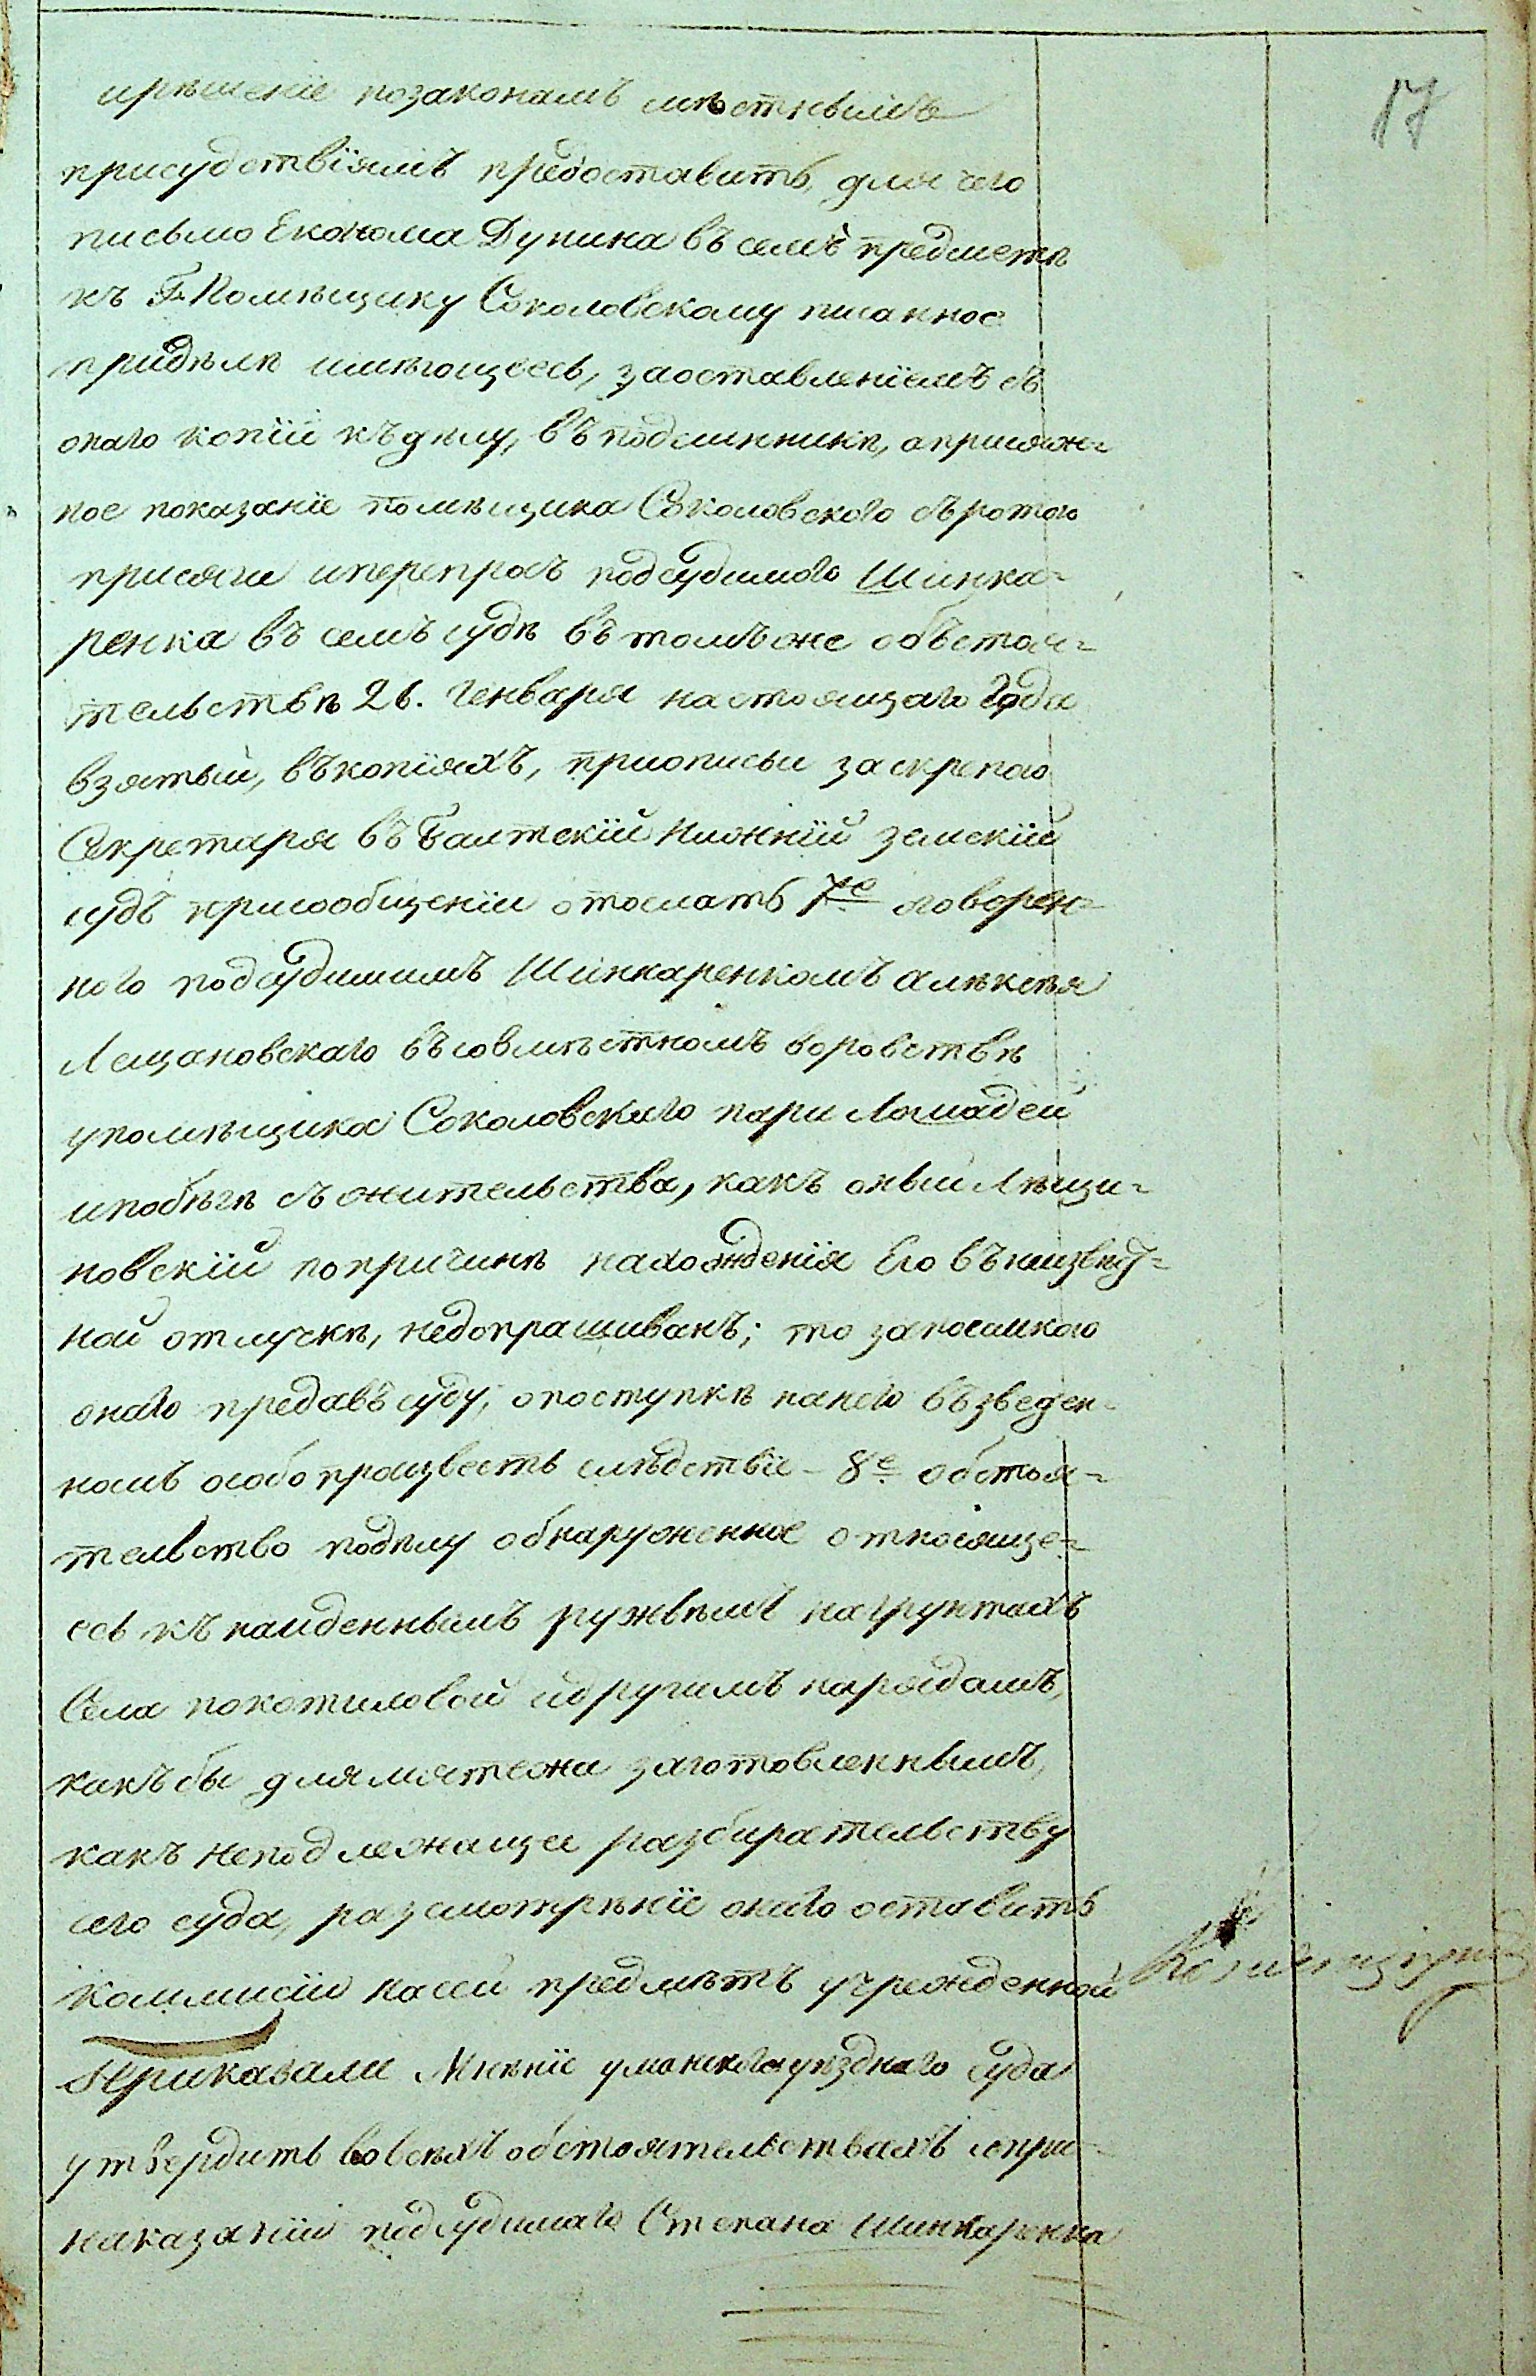 17
ирѣшенїе позаконамъ мѣстнымъ
присудствїямъ предоставить, для чего
письмо Економа Дунина въ семъ предметѣ
къ Г. Помѣщику Соколовскому писанное
придѣлѣ имѣющеесь, заоставленїемъ съ
онаго копїи къ дѣлу, въ подлинникѣ, а присяж=
ное показанїе помѣщика Соколовского съ ротою
присяги иперепросъ подсудимого Шинка=
ренка въ семъ судѣ въ томъ же объстоя=
тельствѣ 26. Генваря настоящаго Года
взятый, въ копїяхъ, приописьи заскрепою
Секретаря въ Балтскїй нижнїй земскїй
судъ присообщенїи отослать 7е оговорен=
ного подсудимимъ Шинкаренкомъ алѣксѣя
Лещановскаго въ совмѣстномъ воровствѣ
упомѣщика Соколовскаго пари Лошадей
ипобѣгѣ съ жительства, какъ оный Лѣщи=
новскїй попричинѣ нахожденїя Его въ неизвѣст=
ной отлучкѣ, недопрашиванъ; то запоимкою
онаго предавъ суду, опоступкѣ нанего възведен=
номъ особо произвесть слѣдствїе - 8е обстоя=
тельство подѣлу обнаруженное относяще=
есь къ найденнымъ ружьямъ нагрунтахъ
Села покотиловой идругимъ нарядамъ,
какъ бы длямятежа заготовленнымъ,
какъ неподлежащее разбирательству
сего суда, разсмотрѣнїе онаго оставить
коммисїи насей предмѣтъ учрежденной
Приказали Мнѣнїе уманскагоуѣзднаго суда
утвердить вовсѣхъ обстоятельствахъ
наказанїи подсудимаго Степана Шинкаренка